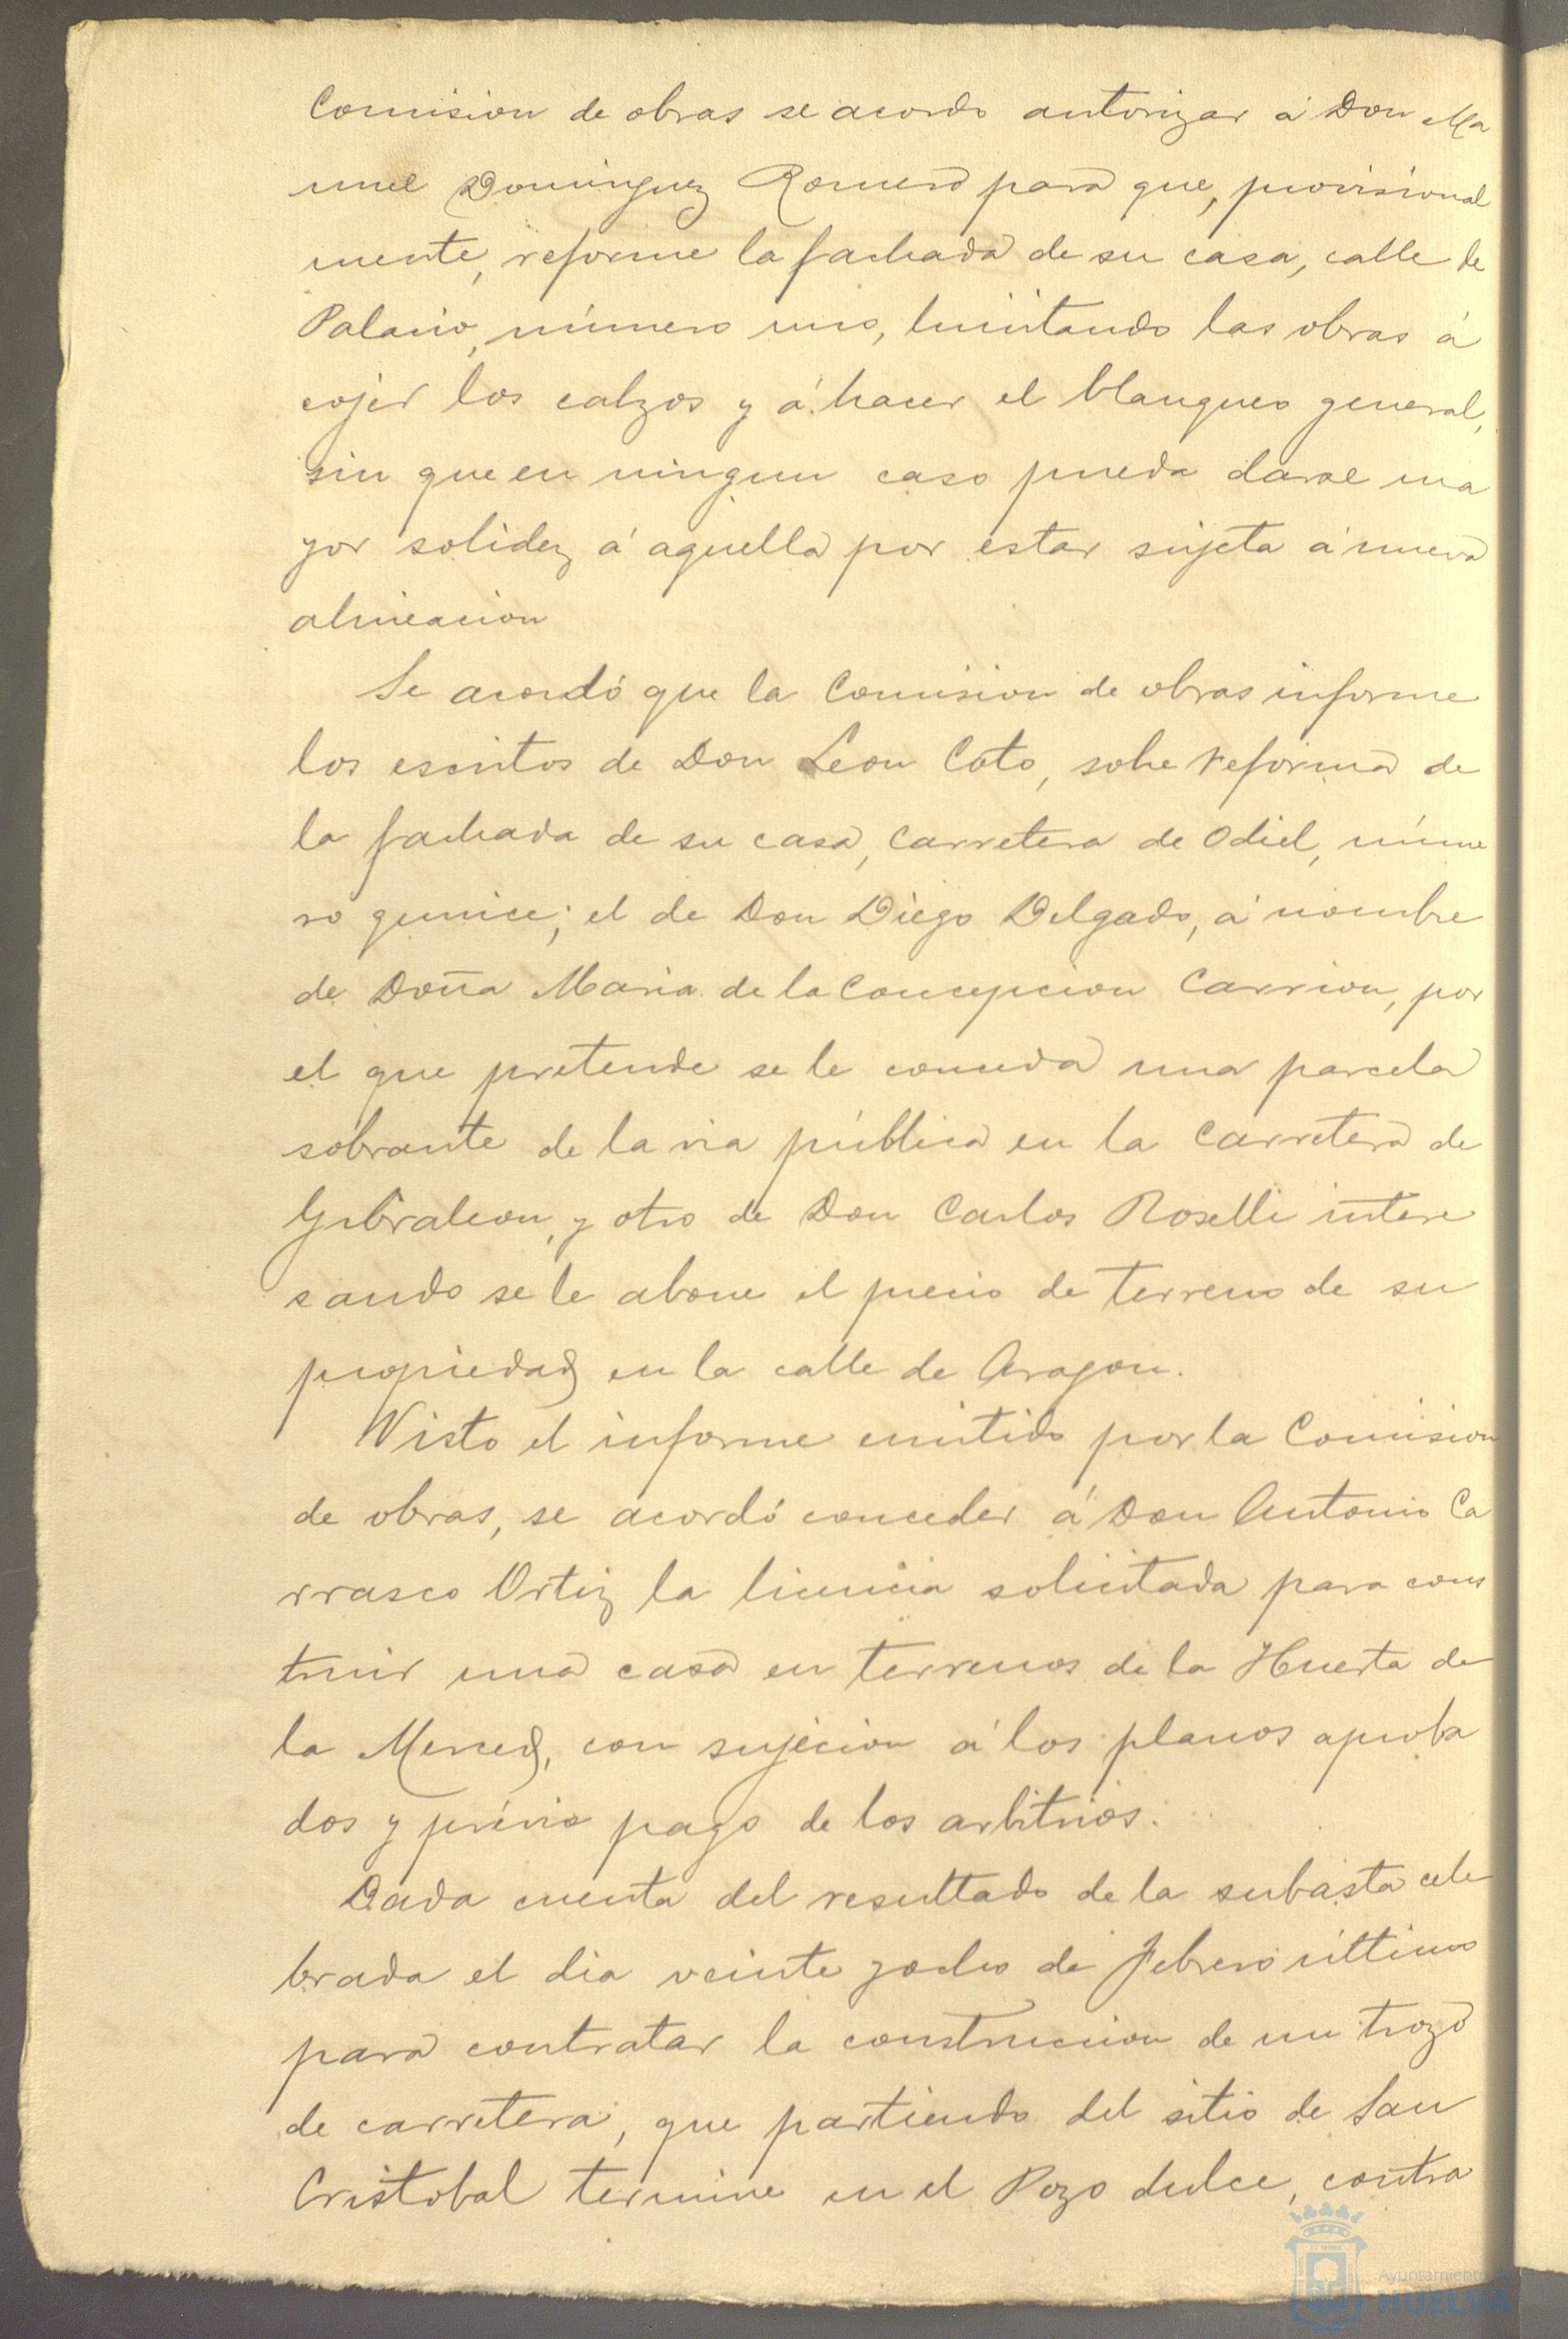 Comision de obras se acordo autorizar á Don Ma
nuel Dominguez Romero para que, provisional
mente, reforme la fachada de su casa, calle de
Palacio, número uno, limitando las obras á
cojer los calzos y á hacer el blanqueo general,
sin que en ningun caso pueda darse ma
yor solidez á aquella por estar sujeta á nueva
alineacion
Se acordó que la Comision de obras informe
los escritos de Don Leon Coto, sobre reforma de
la fachada de su casa, carretera de Odiel, núme
ro quince; el de Don Diego Delgado, á nombre
de Doña Maria de la Concepcion Carrion, por
el que pretende se le conceda una parcela
sobrante de la via pública en la carretera de
Gibraleon, y otro de Don Carlos Roselli intere
sando se le abone el precio de terreno de su
propiedad en la calle de Aragon.
Visto el informe emitido por la Comision
de obras, se acordó conceder á Don Antonio Ca
rrasco Ortiz la licencia solicitada para cons
truir una casa en terrenos de la Huerta de
la Merced, con sujecion á los planos aproba
dos y prévio pago de los arbitrios.
Dada cuenta del resultado de la subasta cele
brada el dia veinte y ocho de Febrero último
para contratar la construccion de un trozo
de carretera, que partiendo del sitio de San
Cristobal termine en el Pozo dulce, contra
Ayuntamiento
HUELVA